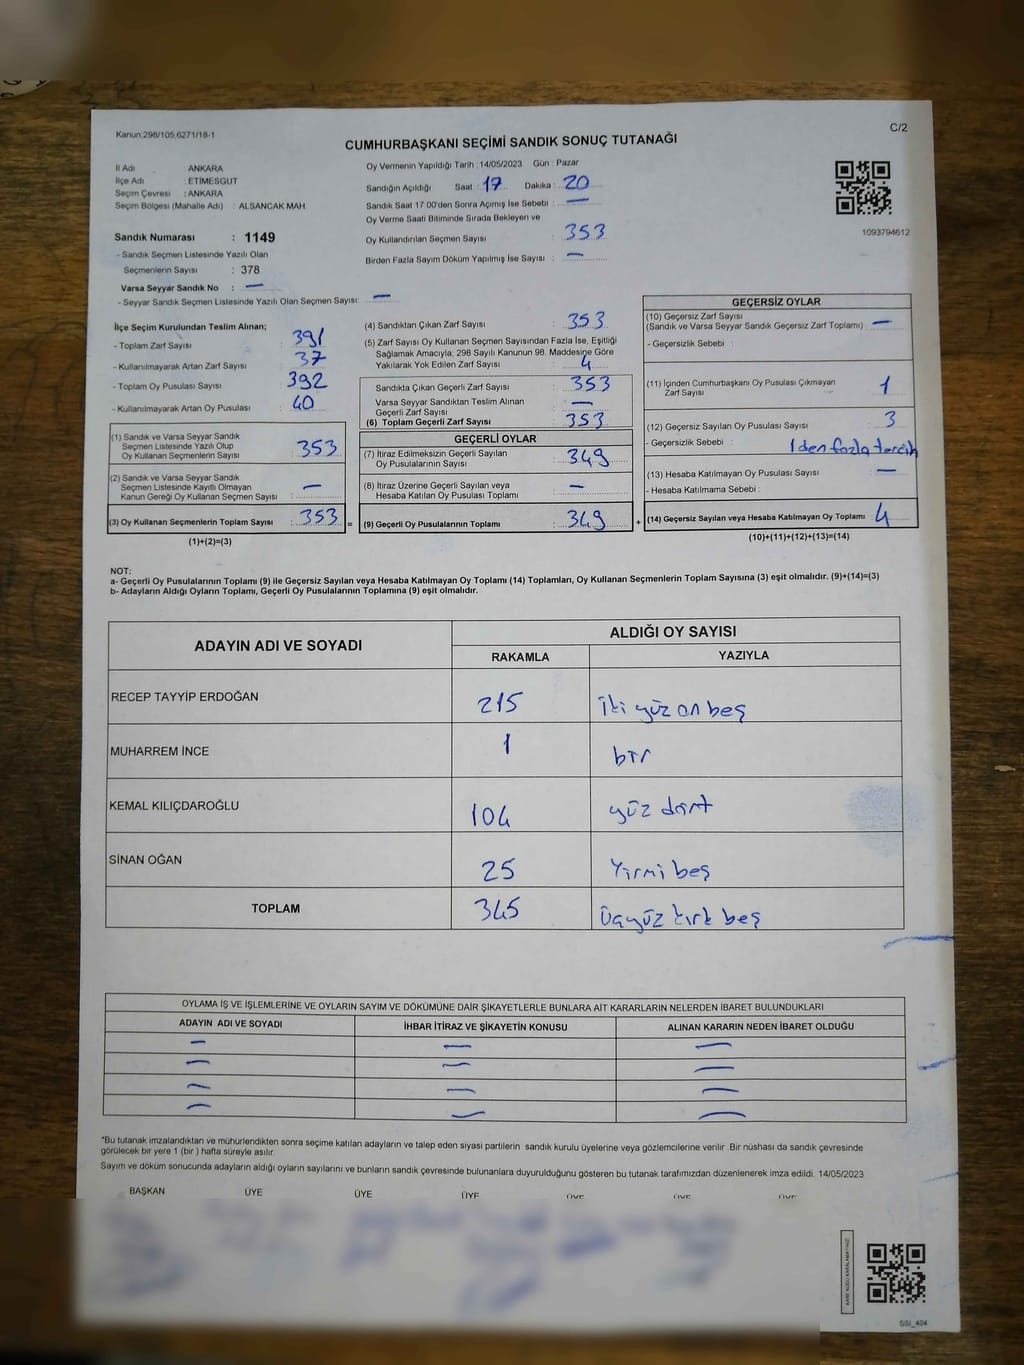 Kanun:298/105.6271/18-1
C/2
CUMHURBAŞKANI SEÇİMİ SANDIK SONUÇ TUTANAĞI
İl Adı : ANKARA
İlçe Adı : ETİMESGUT
Seçim Çevresi : ANKARA
Seçim Bölgesi (Mahalle Adı) : ALSANCAK MAH.
Sandık Numarası : 1149
- Sandık Seçmen Listesinde Yazılı Olan
Seçmenlerin Sayısı : 378
Varsa Seyyar Sandık No : —
- Seyyar Sandık Seçmen Listesinde Yazılı Olan Seçmen Sayısı: —
Oy Vermenin Yapıldığı Tarih :14/05/2023 Gün : Pazar
Sandığın Açıldığı Saat : 17 Dakika : 20
Sandık Saat 17.00'den Sonra Açılmış İse Sebebi : —
Oy Verme Saati Bitiminde Sırada Bekleyen ve
Oy Kullandırılan Seçmen Sayısı : 353
Birden Fazla Sayım Döküm Yapılmış İse Sayısı : —
1093794612
İlçe Seçim Kurulundan Teslim Alınan;
- Toplam Zarf Sayısı : 391
- Kullanılmayarak Artan Zarf Sayısı : 37
- Toplam Oy Pusulası Sayısı : 392
- Kullanılmayarak Artan Oy Pusulası : 40
(1) Sandık ve Varsa Seyyar Sandık
Seçmen Listesinde Yazılı Olup
Oy Kullanan Seçmenlerin Sayısı : 353
(2) Sandık ve Varsa Seyyar Sandık
Seçmen Listesinde Kayıtlı Olmayan
Kanun Gereği Oy Kullanan Seçmen Sayısı : —
(3) Oy Kullanan Seçmenlerin Toplam Sayısı : 353 =
(1)+(2)=(3)
(4) Sandıktan Çıkan Zarf Sayısı : 353
(5) Zarf Sayısı Oy Kullanan Seçmen Sayısından Fazla İse, Eşitliği
Sağlamak Amacıyla; 298 Sayılı Kanunun 98. Maddesine Göre
Yakılarak Yok Edilen Zarf Sayısı : 4
Sandıkta Çıkan Geçerli Zarf Sayısı : 353
Varsa Seyyar Sandıktan Teslim Alınan
Geçerli Zarf Sayısı : —
(6) Toplam Geçerli Zarf Sayısı : 353
GEÇERLİ OYLAR
(7) İtiraz Edilmeksizin Geçerli Sayılan
Oy Pusulalarının Sayısı : 349
(8) İtiraz Üzerine Geçerli Sayılan veya
Hesaba Katılan Oy Pusulası Toplamı : —
(9) Geçerli Oy Pusulalarının Toplamı : 349 +
GEÇERSİZ OYLAR
(10) Geçersiz Zarf Sayısı
(Sandık ve Varsa Seyyar Sandık Geçersiz Zarf Toplamı) : —
- Geçersizlik Sebebi :
(11) İçinden Cumhurbaşkanı Oy Pusulası Çıkmayan
Zarf Sayısı : 1
(12) Geçersiz Sayılan Oy Pusulası Sayısı : 3
- Geçersizlik Sebebi : 1 den fazla tercih
(13) Hesaba Katılmayan Oy Pusulası Sayısı : —
- Hesaba Katılmama Sebebi :
(14) Geçersiz Sayılan veya Hesaba Katılmayan Oy Toplamı : 4
(10)+(11)+(12)+(13)=(14)
NOT:
a- Geçerli Oy Pusulalarının Toplamı (9) ile Geçersiz Sayılan veya Hesaba Katılmayan Oy Toplamı (14) Toplamları, Oy Kullanan Seçmenlerin Toplam Sayısına (3) eşit olmalıdır. (9)+(14)=(3)
b- Adayların Aldığı Oyların Toplamı, Geçerli Oy Pusulalarının Toplamına (9) eşit olmalıdır.
ADAYIN ADI VE SOYADI
ALDIĞI OY SAYISI
RAKAMLA YAZIYLA
RECEP TAYYİP ERDOĞAN 215 iki yüz on beş
MUHARREM İNCE 1 bir
KEMAL KILIÇDAROĞLU 104 yüz dört
SİNAN OĞAN 25 Yirmi beş
TOPLAM 345 Üçyüz kırk beş
OYLAMA İŞ VE İŞLEMLERİNE VE OYLARIN SAYIM VE DÖKÜMÜNE DAİR ŞİKAYETLERLE BUNLARA AİT KARARLARIN NELERDEN İBARET BULUNDUKLARI
ADAYIN ADI VE SOYADI İHBAR İTİRAZ VE ŞİKAYETİN KONUSU ALINAN KARARIN NEDEN İBARET OLDUĞU
— — —
— — —
— — —
— — —
*Bu tutanak imzalandıktan ve mühürlendikten sonra seçime katılan adayların ve talep eden siyasi partilerin sandık kurulu üyelerine veya gözlemcilerine verilir. Bir nüshası da sandık çevresinde
görülecek bir yere 1 (bir ) hafta süreyle asılır.
Sayım ve döküm sonucunda adayların aldığı oyların sayılarını ve bunların sandık çevresinde bulunanlara duyurulduğunu gösteren bu tutanak tarafımızdan düzenlenerek imza edildi. 14/05/2023
BAŞKAN ÜYE ÜYE ÜYE ÜYE ÜYE ÜYE
KARE KODU KARALAMAYINIZ!
SSİ_404